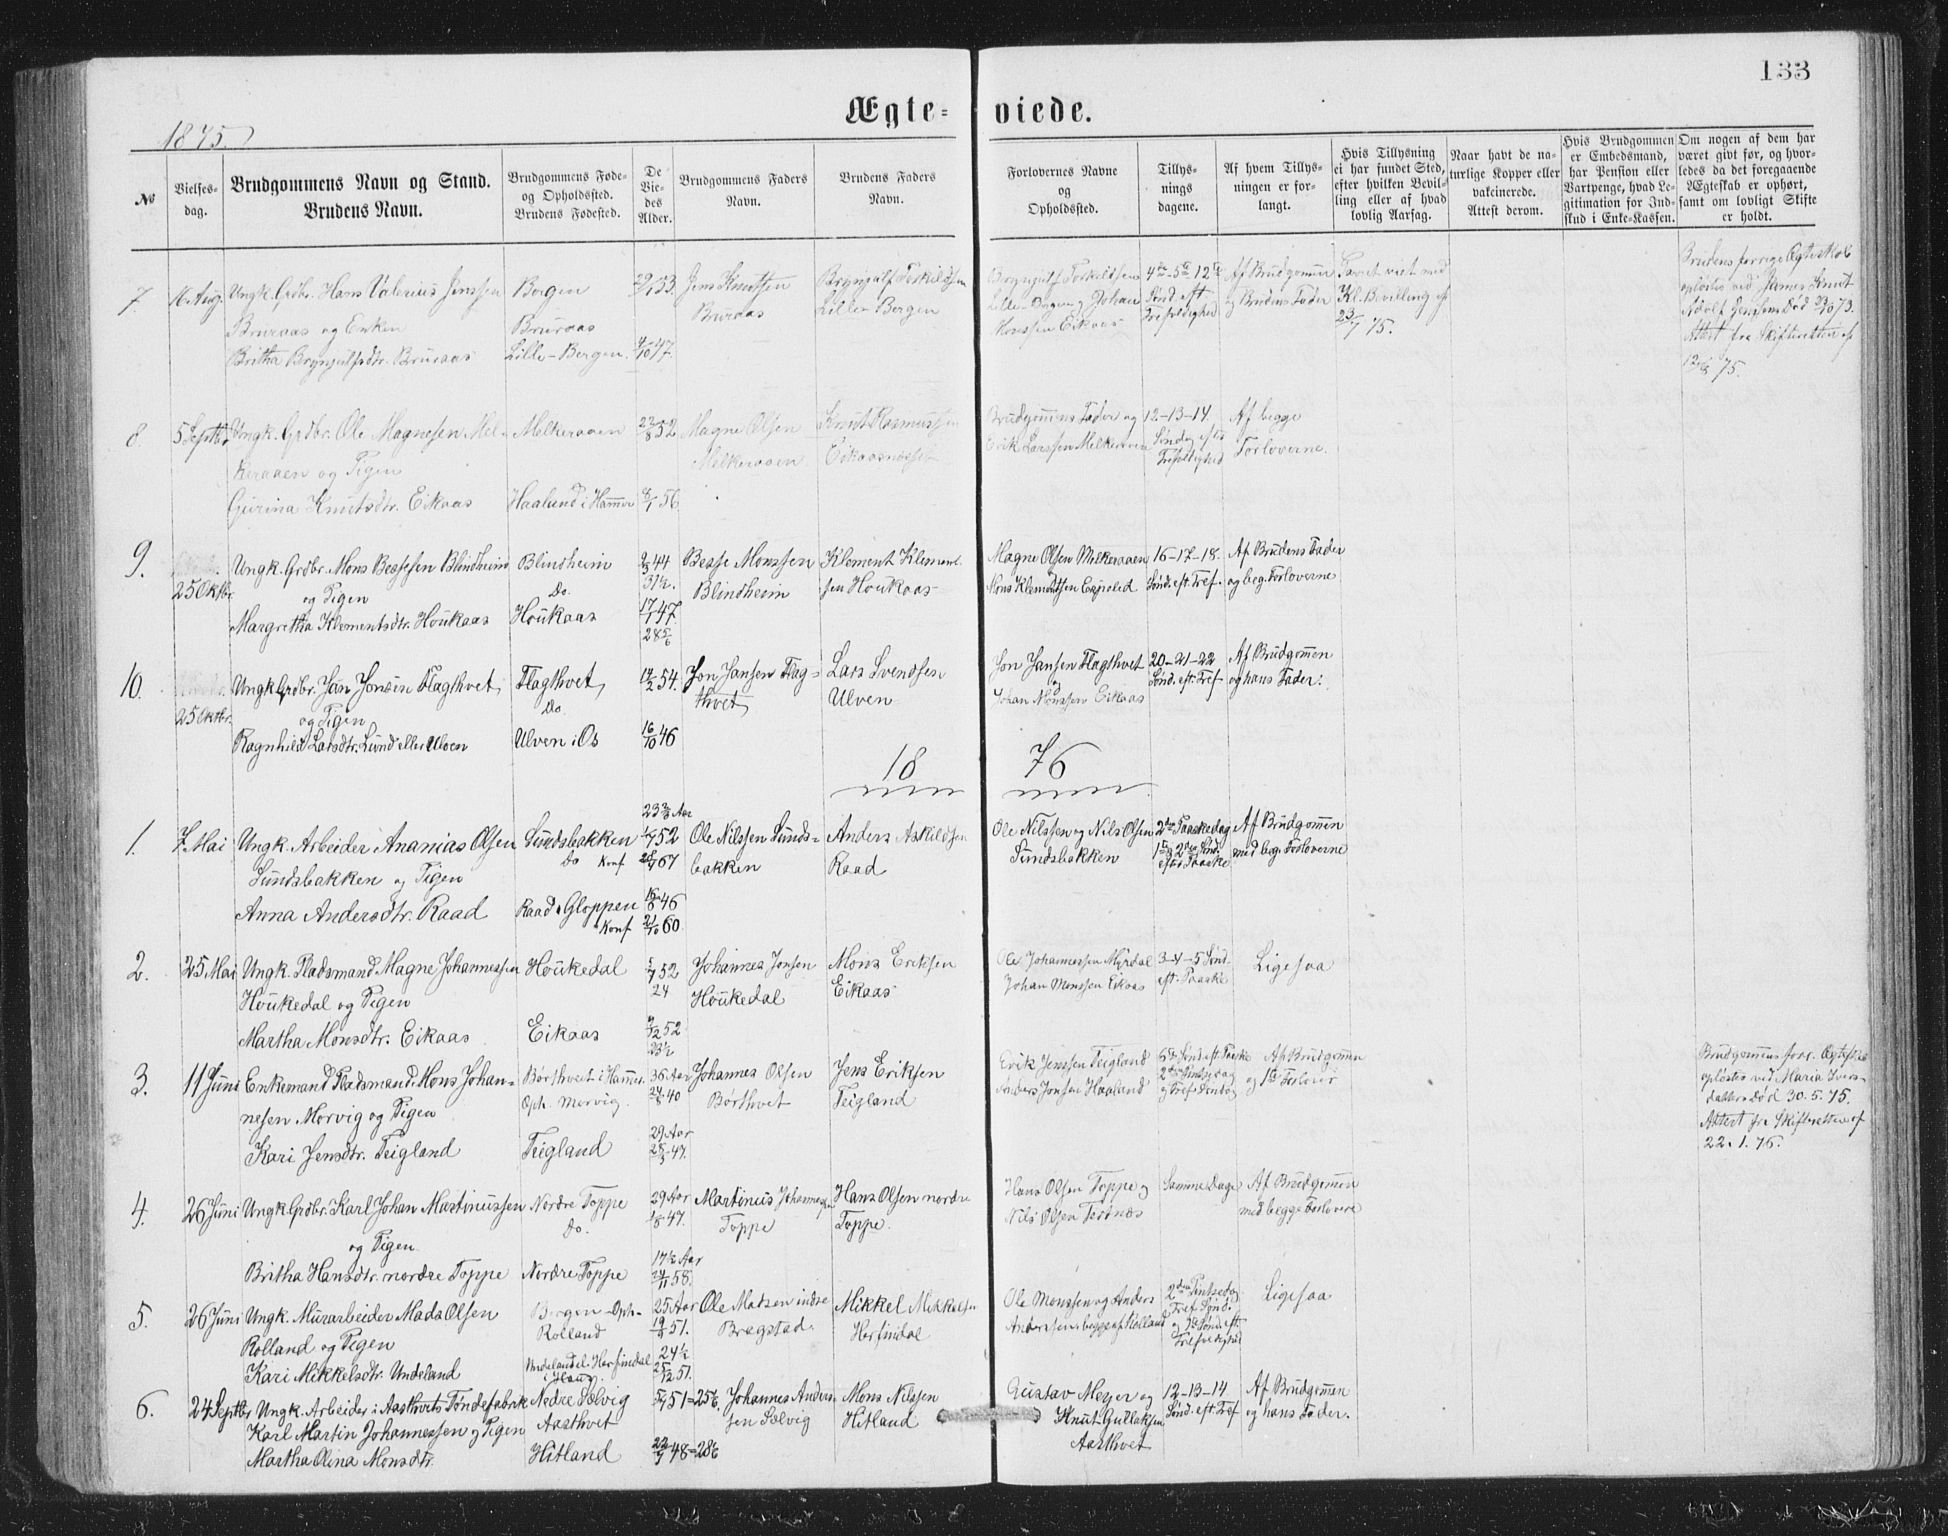 133
Ægte- viede.
1875.
No
Vielses-
dag.
Brudgommens Navn og Stand.
Brudens Navn.
Brudgommens Føde-
og Opholdssted.
Brudens Fødested.
De
Vie-
des
Alder.
Brudgommens Faders
Navn.
Brudens Faders
Navn.
Forlovernes Navne
og
Opholdssted.
Tillys-
nings
dagene.
Af hvem Tillys-
ningen er for-
langt.
Hvis Tillysning
ei har fundet Sted,
efter hvilken Bevil-
ling eller af hvad
lovlig Aarsag.
Naar havt de na-
turlige Kopper eller
vakcinerede.
Attest derom.
Hvis Brudgommen
er Embedsmand,
har Pension eller
Vartpenge, hvad Le-
gitimation for Ind-
skud i Enke-Kassen.
Om nogen af dem har
været givt før, og hvor-
ledes da det foregaaende
Ægteskab er ophørt,
samt om lovligt Skifte
er holdt.
7. 16 Aug. Ungk. Grdbr. Hans Valerius Jenssen
Bruraas og Enken
Britha Brynjulfsdtr. Bruraas
Bergen
Bruraas
Lille-Bergen.
33.
47.
Jens Knutsen
Bruraas
Brynjulf Torkildsen
Lille-Bergen
Brynjulf Torkildsen
Lille-Bergen og Johan
Monssen Eikaas
4de-5te 12te
Sønd. eft.
Trefoldighed
Af Brudgomen
og Brudens Fader
Kl. Bevilling af
23/7 75.
Brudens forrige Ægteskab
opløstes ved
Attest fra Skifteretten af
75.
8. 5 Septbr. Ungk. Grdbr. Ole Magnesen Mel-
keraaen og Pigen
Gurina Knutsdtr. Eikaas
Melkeraaen
Haaland i Hammer
23/8 52
8/1 56
Magne Olsen
Melkeraaen
Knut Rasmussen
Eikaasnesset
Brudgomens Fader og
Erik Larssen Melkeraaen
12-13-14
Søndag efter
Trefoldighed
Af begge
Forloverne.
9.
25 Oktbr.
Ungk. Grdbr. Mons Bessesen Blindheim
og Pigen
Margretha Klementsdtr. Houkaas
Blindheim
Do.
Houkaas
44
31½.
17/1 47.
28 5/6
Besse Monssen
Blindheim
Klement Klement-
sen Houkaas
Magne Olsen Melkeraaen
Mons Klementsen
16-17-18.
Sønd. eft. Tref.
Af Brudens Fader
og beg. Forloverne
10.
25 Oktbr.
Ungk. Grdbr. Jan Jonsen Flagthvet
og Pigen
Ragnhild Larsdtr. Lund eller Ulven
Flagthvet
Do
Ulven i Os
54.
16/10 46
Jon Jansen Flag-
thvet
Lars Svendsen
Ulven
Jon Jansen Flagthvet
og
Johan Monssen Eikaas
20-21-22
Sønd. eft. Tref
Af Brudgomen
og hans Fader.
18 76
1. 7 Mai Ungk. Arbeider Ananias Olsen
Sundsbakken og Pigen
Anna Andersdtr. Raad
Sundsbakken
Do Konf
Raad i Gloppen
Konf
Aar
52
67
46
60.
Ole Nilssen Sunds-
bakken
Anders Askildsen
Raad
Ole Nilssen og Nils Olsen
Sundsbakken
2den Paaskedag
1ste 2den Sønd.
efter Paaske
Af Brudgomen
med beg. Forloverne
2. 25 Mai Ungk. Pladsmand Magne Johannessen
Houkedal og Pigen
Martha Monsdtr. Eikaas
Houkedal
Eikaas
52
24
52
23½
Johannes Jonsen
Houkedal
Mons Eriksen
Eikaas
Ole Johannessen Myrdal
Johan Monssen Eikaas
3-4-5 Sønd.
eft. Paaske
Ligesaa
3. 11 Juni Enkemand Pladsmand Mons Johan-
nesen Morvig og Pigen
Kari Jensdtr. Teigland
Børthveit i Hammer.
Oph. Morvig.
Teigland
36 Aar
40
29 Aar
47.
Johannes Olsen
Børthvet
Jens Eriksen
Teigland
Erik Jenssen Teigland
Anders Jonsen Haaland
6te Sønd. eft. Paaske
2den Pintsedag
og Tref. Søndag
Af Brudgomen
og 1ste Forlover
Brudgomens forr. Ægteskab
opløstes ved Maria Ivers-
datters Død 30.5.75.
Attest fra Skifteretten af
22.1.76.
4. 26 Juni Ungk. Grdbr. Karl Johan Martinussen
og Pigen
Britha Hansdtr. nordre Toppe
Nordre Toppe
Do.
Nordre Toppe
29 Aar
47.
17½ Aar
58.
Martinus Johannessen
Toppe
Hans Olsen nordre
Toppe.
Hans Olsen Toppe og
Nils Olsen Tertnæs
Samme Dage
Af Brudgomen
med begge Forlovere
5. 26 Juni Ungk. Murarbeider Mads Olsen
Rolland og Pigen
Kari Mikkelsdtr. Undeland
Bergen Oph.
Rolland
Undeland el. Herfindal
25 Aar
51.
24½
25/12 51.
Ole Matsen indre
Brægstad.
Mikkel Mikkelsen
Herfindal
Ole Monssen og Anders
Anderssen begge af Rolland
2den Pintsedag
Tref. Sønd.
og 1ste Sønd. eft.
Trefoldighed
Ligesaa
6. 24 Septbr. Ungk. Arbeider i Aasthvets Tøndefabrik
Karl Martin Johannessen og Pigen
Martha Olina Monsdtr.
Nedre Sælvig
Aasthvet
Hitland
51=25
48=28
Johannes Anders-
sen Sælvig
Mons Nilssen
Hitland
Gustav Meyer og
Knut Gullaksen
Aasthvet
12-13-14
Sønd. eft. Tref
Af Brudgomen
og hans Fader.